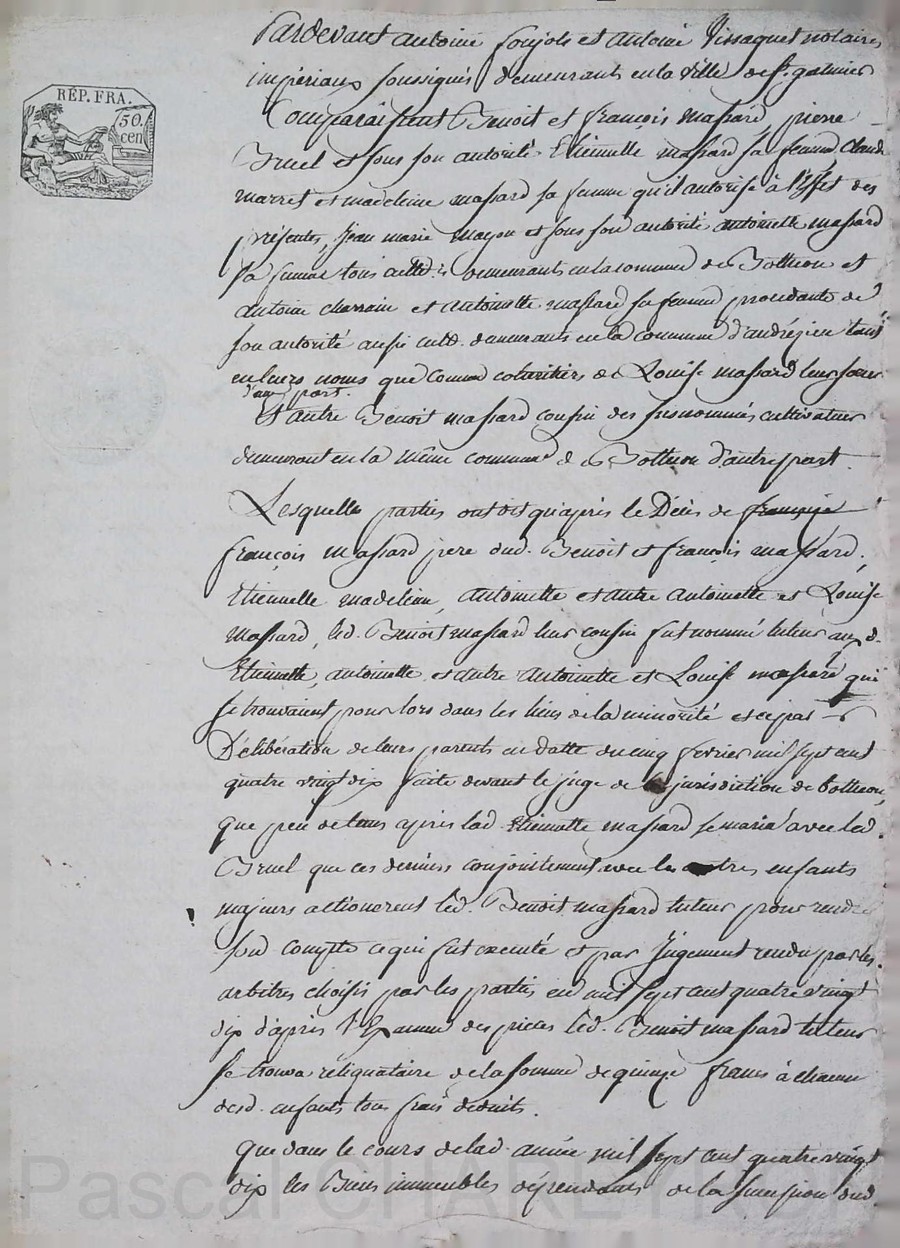 Pardevant antoine foujols et antoine Vissaguet notaires
impériaux soussignés demeurants en la ville de st. galmier
Comparaissent Benoit et françois massard, pierre
Bruel et sous son autorité Etiennette massard sa femme, Claude
marret et madeleine massard sa femme qu'il autorise à l'effet des
présentes, Jean marie mayon et sous son autorité antoinette massard
sa femme tous cultrs. demeurants en la commune de Botheon et
antoine et antoinette massard sa femme procedante de
son autorité aussi cultr. demeurants en la commune d'andrézieu tous
en leurs noms que comme cohéritiers de Louise massard leur sœur
d'une part.
Et autre Benoit massard cousin des susnommés cultivateur
demeurant en la même commune de Botheon d'autre part.
Lesquelles parties ont dit qu'après le Décès de
françois massard pere dud. Benoit et françois massard,
Etiennette madeleine, antoinette et autre antoinette et Louise
massard, led. Benoit massard leur cousin fut nommé tuteur aux d.
Etiennette, antoinette et autre antoinette et Louise massard qui
se trouvaient pour lors dans les liens de la minorité et ce par
Délibération de leurs parents en datte du cinq fevrier mil sept cent
quatre vingt dix faite devant le juge de la jurisdiction de botheon,
que peu de tems après lad. Etiennette massard se maria avec led.
Bruel que ces derniers conjointement avec les autres enfants
majeurs actionerent led. Benoit massard tuteur pour rendre
son compte ce qui fut executé et par Jugement rendu par les
arbitres choisis par les parties en mil sept cent quatre vingt
dix d'après l'Examen des pieces led. Benoit massard tuteur
se trouva réliquataire de la somme de quinze francs à chacun
desd. enfants tous frais deduits.
que dans le cours de lad. année mil sept cent quatre vingt
dix les Biens immeubles dépendants de la succession dud
RÉP. FRA.
50.
cen
Pascal CHAREYRON